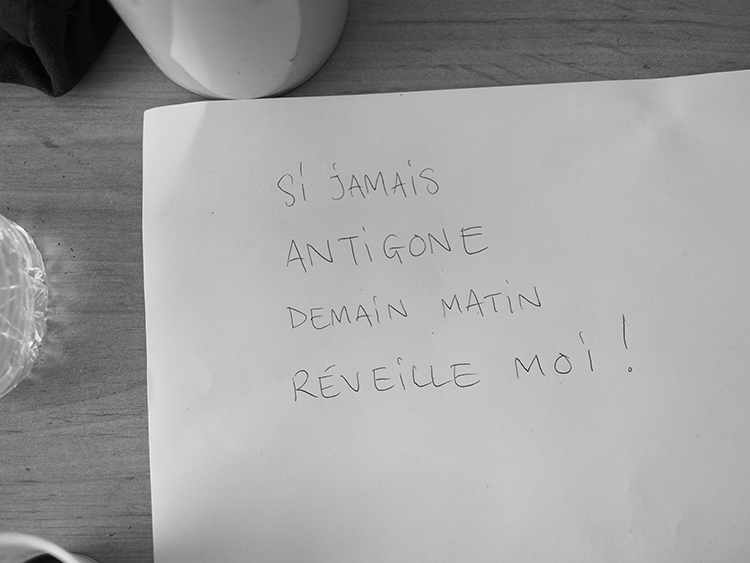 Si JAMAiS
ANTiGONE
DEMAiN MATiN
RÉVEiLLE MOi !